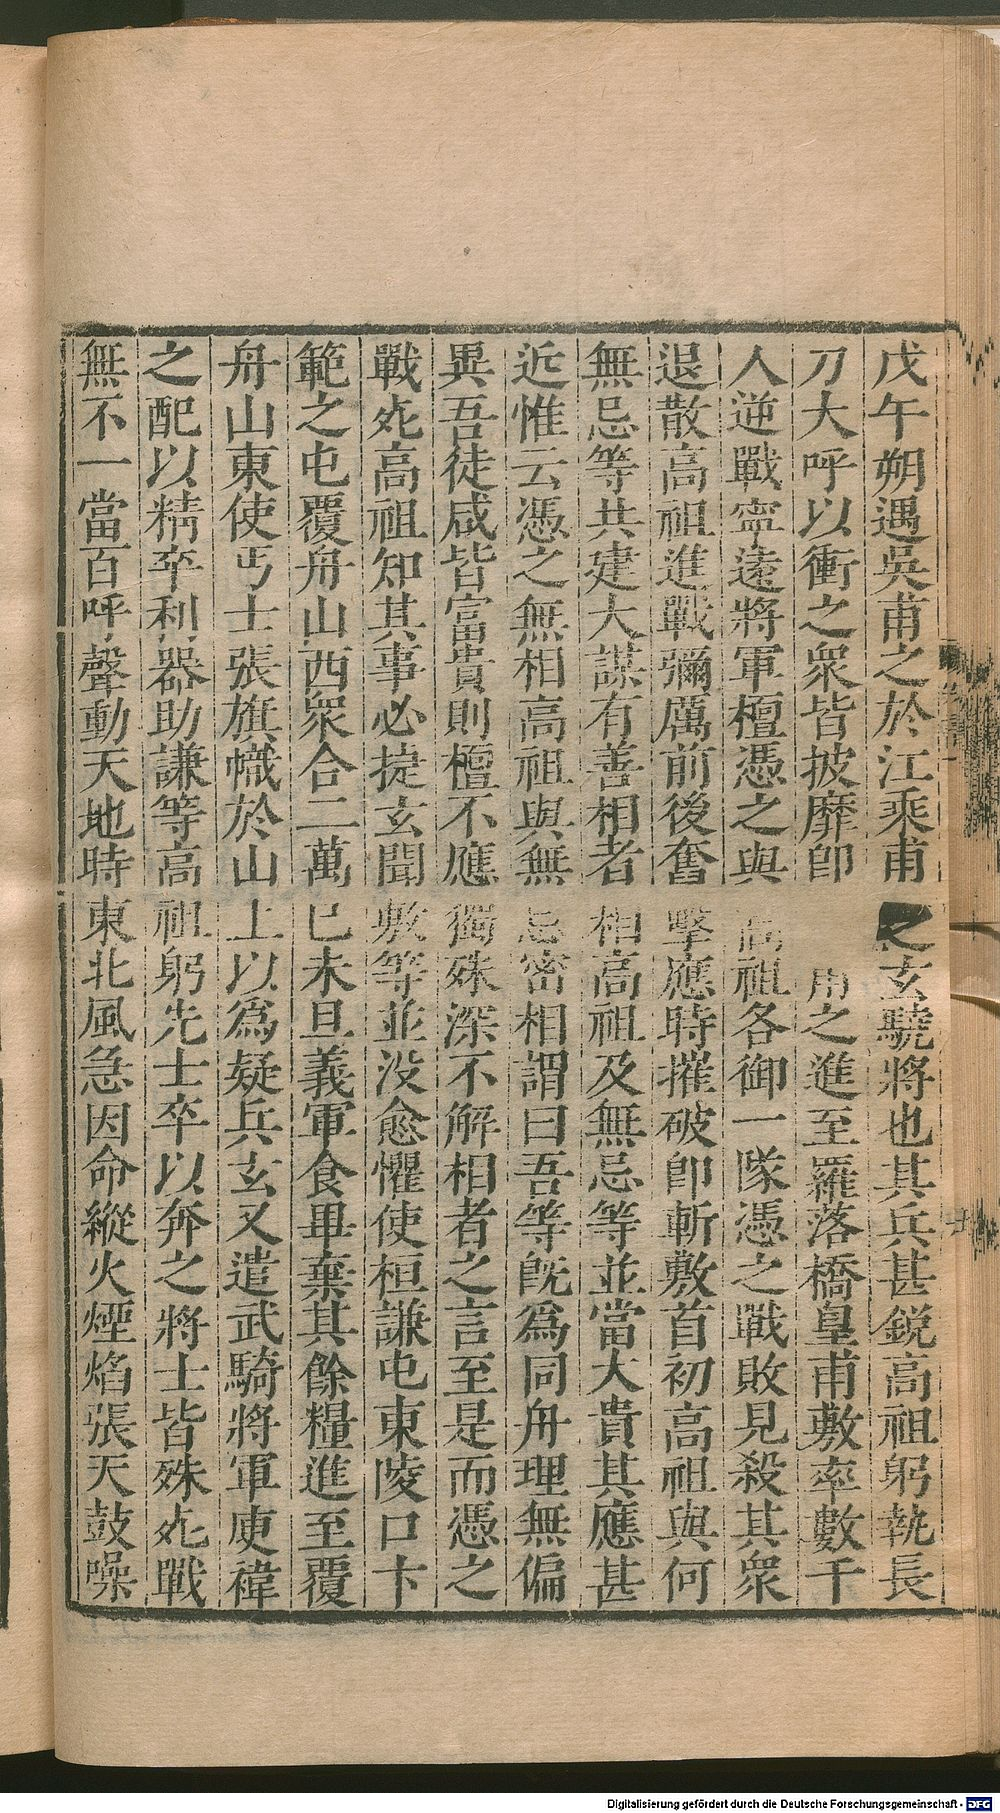 戊午朔遇吳甫之於江乘甫之玄驍將也其兵甚鋭高祖躬執長
刀大呼以衝之衆皆披靡卽用之進至羅落橋皇甫敷率數千
人逆戰寧遠將軍檀憑之與高祖各御一隊憑之戰敗見殺其衆
退散高祖進戰彌厲前後奮擊應時摧破卽斬敷首初高祖與何
無忌等共建大謀有善相者相高祖及無忌等並當大貴其應甚
近惟云憑之無相高祖與無忌密相謂曰吾等旣爲同舟理無偏
異吾徒咸皆富貴則檀不應獨殊深不解相者之言至是而憑之
戰死高祖知其事必捷玄聞敷等並没愈懼使桓謙屯東陵口卞
範之屯覆舟山西衆合二萬己未旦義軍食畢棄其餘糧進至覆
舟山東使丐士張旗幟於山上以爲疑兵玄又遣武騎將軍庾褘
之配以精卒利器助謙等高祖躬先士卒以奔之將士皆殊死戰
無不一當百呼聲動天地時東北風急因命縱火煙焰張天鼓噪
Digitalisierung gefördert durch die Deutsche Forschungsgemeinschaft - DFG